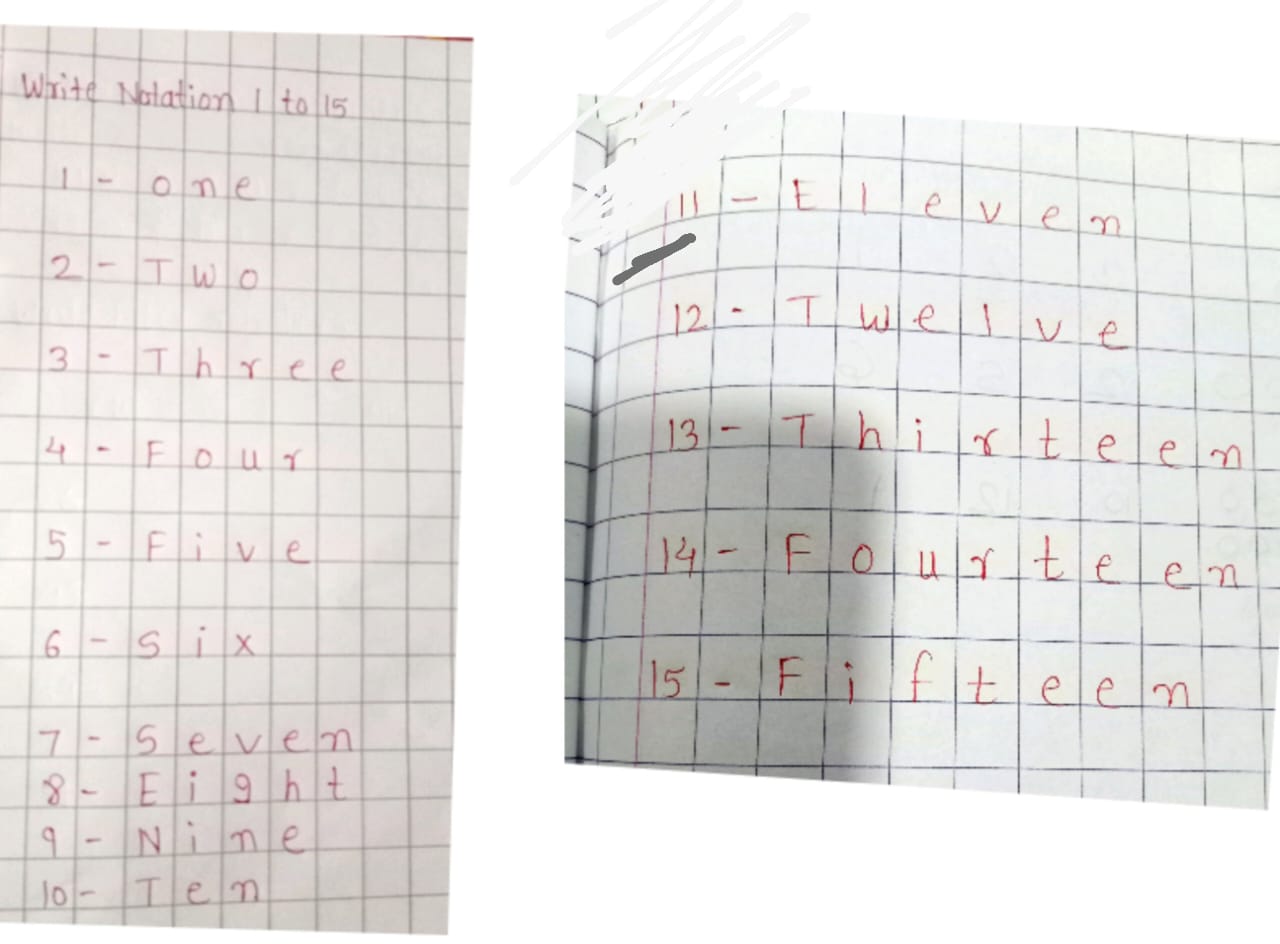 Write Notation 1 to 15
1 - one
2 - Two
3 - Three
4 - Four
5 - Five
6 - Six
7 - Seven
8 - Eight
9 - Nine
10 - Ten
11 - Eleven
12 - Twelve
13 - Thirteen
14 - Fourteen
15 - Fifteen